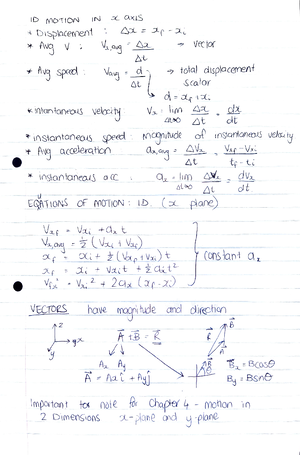 1D MOTION IN x AXIS
* Displacement : Δx = xf - xi
* Avg V : Vx,avg = Δx/Δt → vector
* Avg speed : Vavg = d/Δt → total displacement
scalar
d = xf + xi
* instantaneous velocity Vx = lim Δt→0 Δx/Δt = dx/dt
* instantaneous speed: magnitude of instantaneous velocity
* Avg acceleration ax,avg = ΔVx/Δt = Vxf - Vxi/tf - ti
* instantaneous acc : ax = lim Δt→0 ΔVx/Δt = dVx/dt
EQATIONS OF MOTION: 1D. (x plane)
Vxf = Vxi + axt
Vx,avg = 1/2 (Vxi + Vxf)
xf = xi + 1/2 (Vxf + Vxi) t
xf = xi + Vxi t + 1/2 axt²
Vxf² = Vxi² + 2ax (xf - xi)
constant ax
VECTORS have magnitude and direction
A + B = R
Ax Ay
A = Axi + Ayj
Bx = Bcosθ
By = Bsinθ
Important to note for Chapter 4 - motion in
2 Dimensions x-plane and y-plane